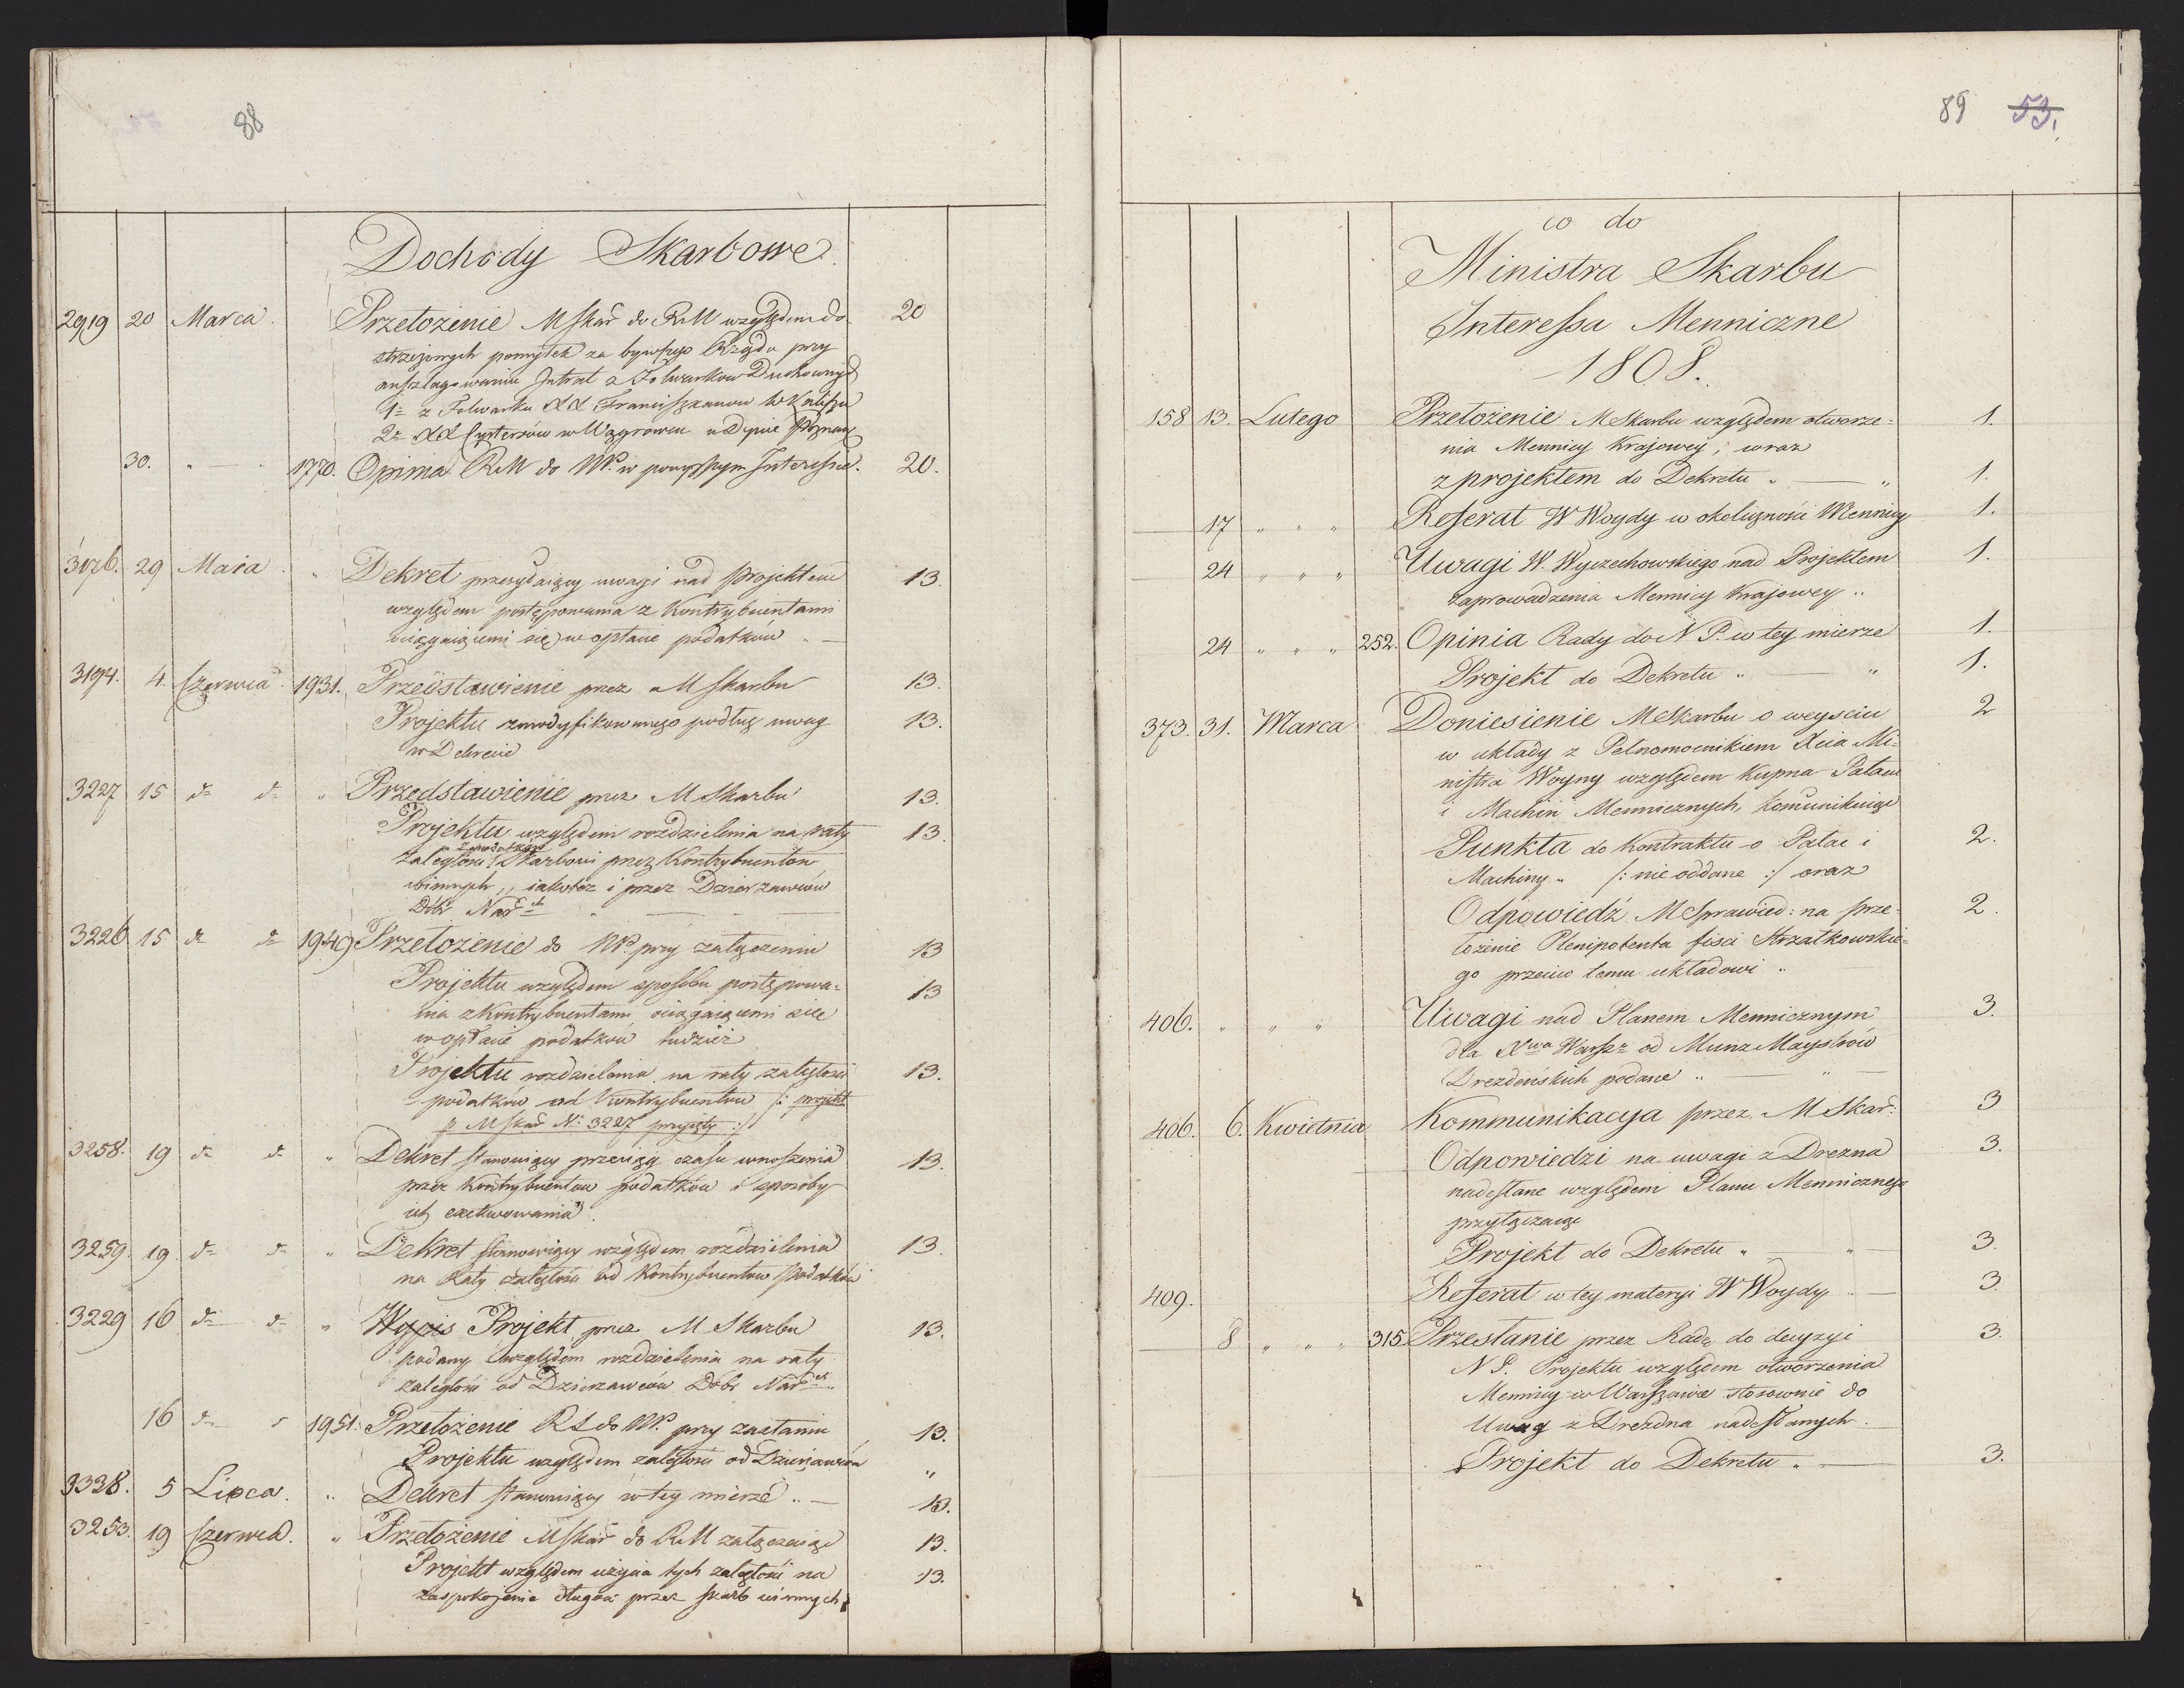 88
Dochody Skarbowe
2919 20 Marca Przełożenie MSkar do RM względem do- 20
strzeżonych pomyłek za bywszego Rządu przy
anszlagowaniu Intrat z Folwarkow Duchownych
1= z Folwarku XX Franciszkanow w Kaliszu
2= XX Cystersów w Wągrowcu w Depcie Poznang
30. " 1770. Opinia RM do NP. w powyższym Interessie. 20.
3176. 29 Maia " Dekret przesyłaiący uwagi nad projektem 13.
względem postępowania z Kontrybuentami
ociągaiącemi się w opłacie podatków " —
3194. 4. Czerwca 1931. Przedstawienie przez MSkarbu 13.
Projektu zmodyfikowanego podług uwag 13.
w Dekrecie
3227 15 d= d= " Przedstawienie przez MSkarbu 13.
Projektu względem rozdzielenia na raty 13
z podatkow
zaległości Skarbowi przez Kontrybuentow
winnych, iakoteż i przez Dzierzawców
Dóbr Nar
3226 15 d= d= 1949 Przełożenie do NP. przy załączeniu 13
Projektu względem sposobu postępowa- 13
nia z Kontrybuentami ociągaiącemi sie
w opłacie podatków tudzież
Projektu rozdzielenia na raty zaległości 13.
podatków od Kontrybuentow /: projekt
p MSkar N: 3227 przyięty :/
3258. 19 d= d= " Dekret stanowiący przeciąg czasu wnoszenia 13.
przez Kontrybuentow podatków i sposoby
ich exekwowania
3259. 19 d= d= " Dekret stanowiący względem rozdzielenia 13.
na Raty zaległości od Kontrybuentow podatków
3229 16 d= d= " Wypis Projekt przez M Skarbu 13.
podany względem rozdzielenia na raty
zaległości od Dzierzawców Dóbr Nar
16 d= 1951. Przełożenie RS do NP. przy zasłaniu 13.
Projektu względem zaległości od Dzierżawców "
3328. 5 Lipca. " Dekret stanowiący w tey mierze " — 13.
3253. 19 Czerwca. " Przełożenie MSkar do RM załączaiące 13.
Projekt względem użycia tych zaległości na 13.
zaspokojenie długów przez skarb winnych
89 53.
co do
Ministra Skarbu
Interessa Menniczne
1808.
158 13. Lutego Przełożenie MSkarbu względem otworze- 1.
nia Mennicy Krajowey; wraz
z projektem do Dekretu " — " 1.
17 " " " Referat W Woydy w okoliczności Mennicy 1.
24 " " " Uwagi W. Wyczechowskiego nad Projektem 1.
zaprowadzenia Mennicy Krajowey "
24 " " " 252. Opinia Rady do N P. w tey mierze 1.
Projekt do Dekretu " — " 1.
373. 31. Marca Doniesienie MSkarbu o weyściu 2
w układy z Pełnomocnikiem Xcia Mi-
nistra Woyny względem Kupna Pałacu
i Machin Mennicznych, komunikuiąc
Punkta do Kontraktu o Pałac i 2.
Machiny " /: nie oddane :/ oraz
Odpowiedź MSprawied: na prze- 2.
łożenie Plenipotenta fisci Strzałkowskie-
go przeciw temu układowi "
406. " " " Uwagi nad Planem Mennicznym 3.
dla Xwa Warsz= od Munz Maystrów
Drezdeńskich podane " — "
406. 6. Kwietnia Kommunikacya przez MSkar: 3
Odpowiedzi na uwagi z Drezna 3.
nadesłane względem Planu Mennicznego
przyłączaiąc
Projekt do Dekretu " — " 3.
409. Referat w tey materyi W Woydy — 3.
8 " " " 315. Przesłanie przez Radę do decyzyi 3.
N P. Projektu względem otworzenia
Mennicy w Warszawie stosownie do
Uwag z Drezdna nadesłanych
Projekt do Dekretu " — 3.